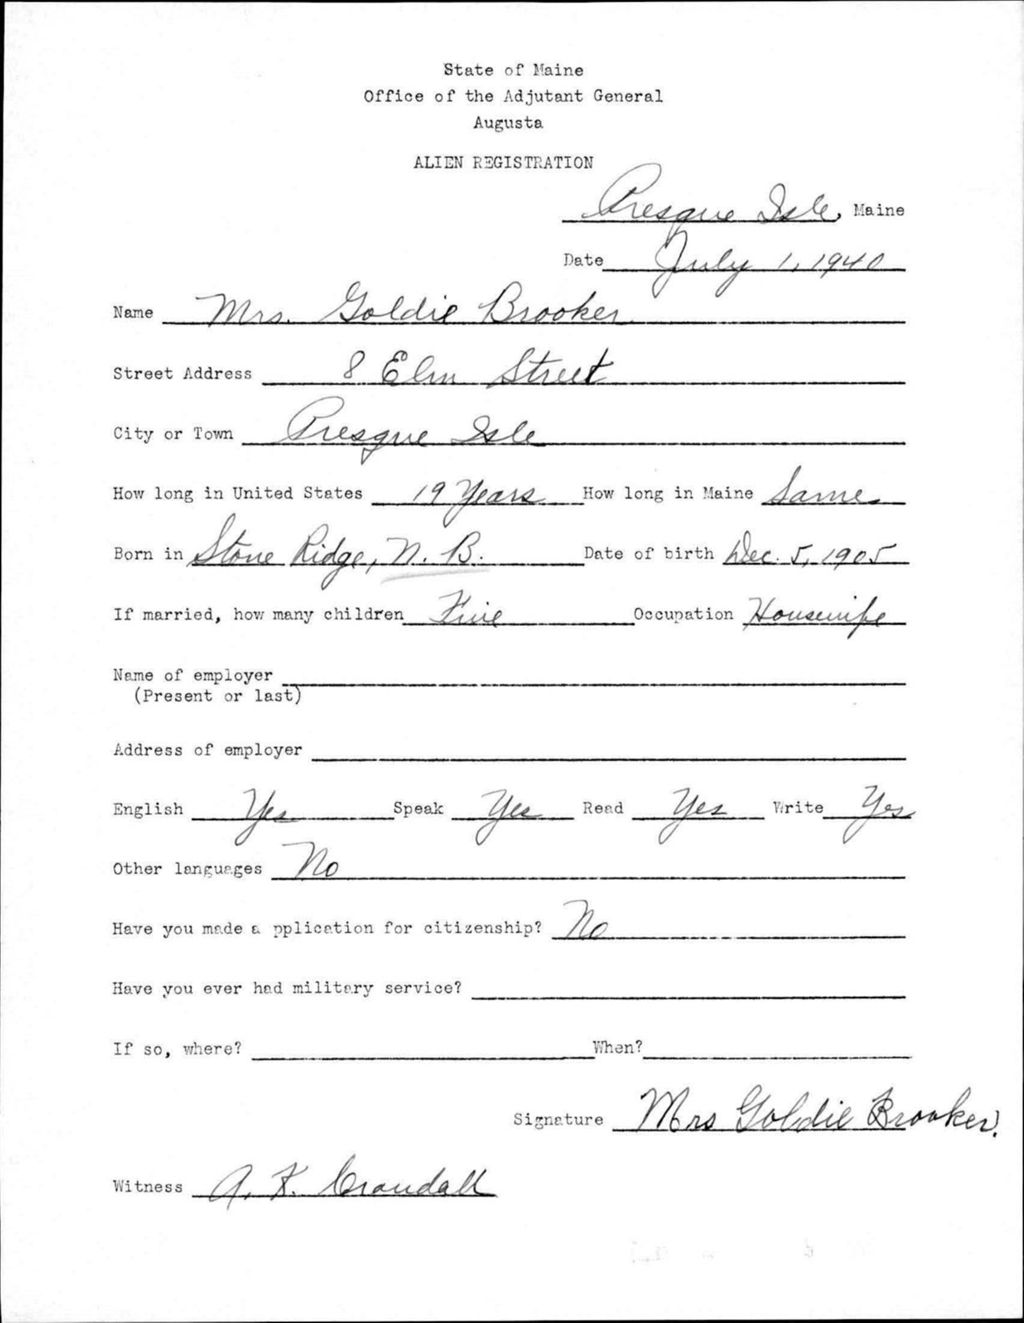 State of Maine
Office of the Adjutant General
Augusta
ALIEN REGISTRATION
Presque Isle, Maine
Date July 1, 1940
Name Mrs. Goldie Brooker
Street Address 8 Elm Street
City or Town Presque Isle
How long in United States 19 Years How long in Maine Same
Born in Stone Ridge, N. B. Date of birth Dec. 5, 1905
If married, how many children Five Occupation Housewife
Name of employer
(Present or last)
Address of employer
English Yes Speak Yes Read Yes Write Yes
Other languages No
Have you made a pplication for citizenship? No
Have you ever had military service?
If so, where? When?
Signature Mrs Goldie Brooker.
Witness A. F. Crandall